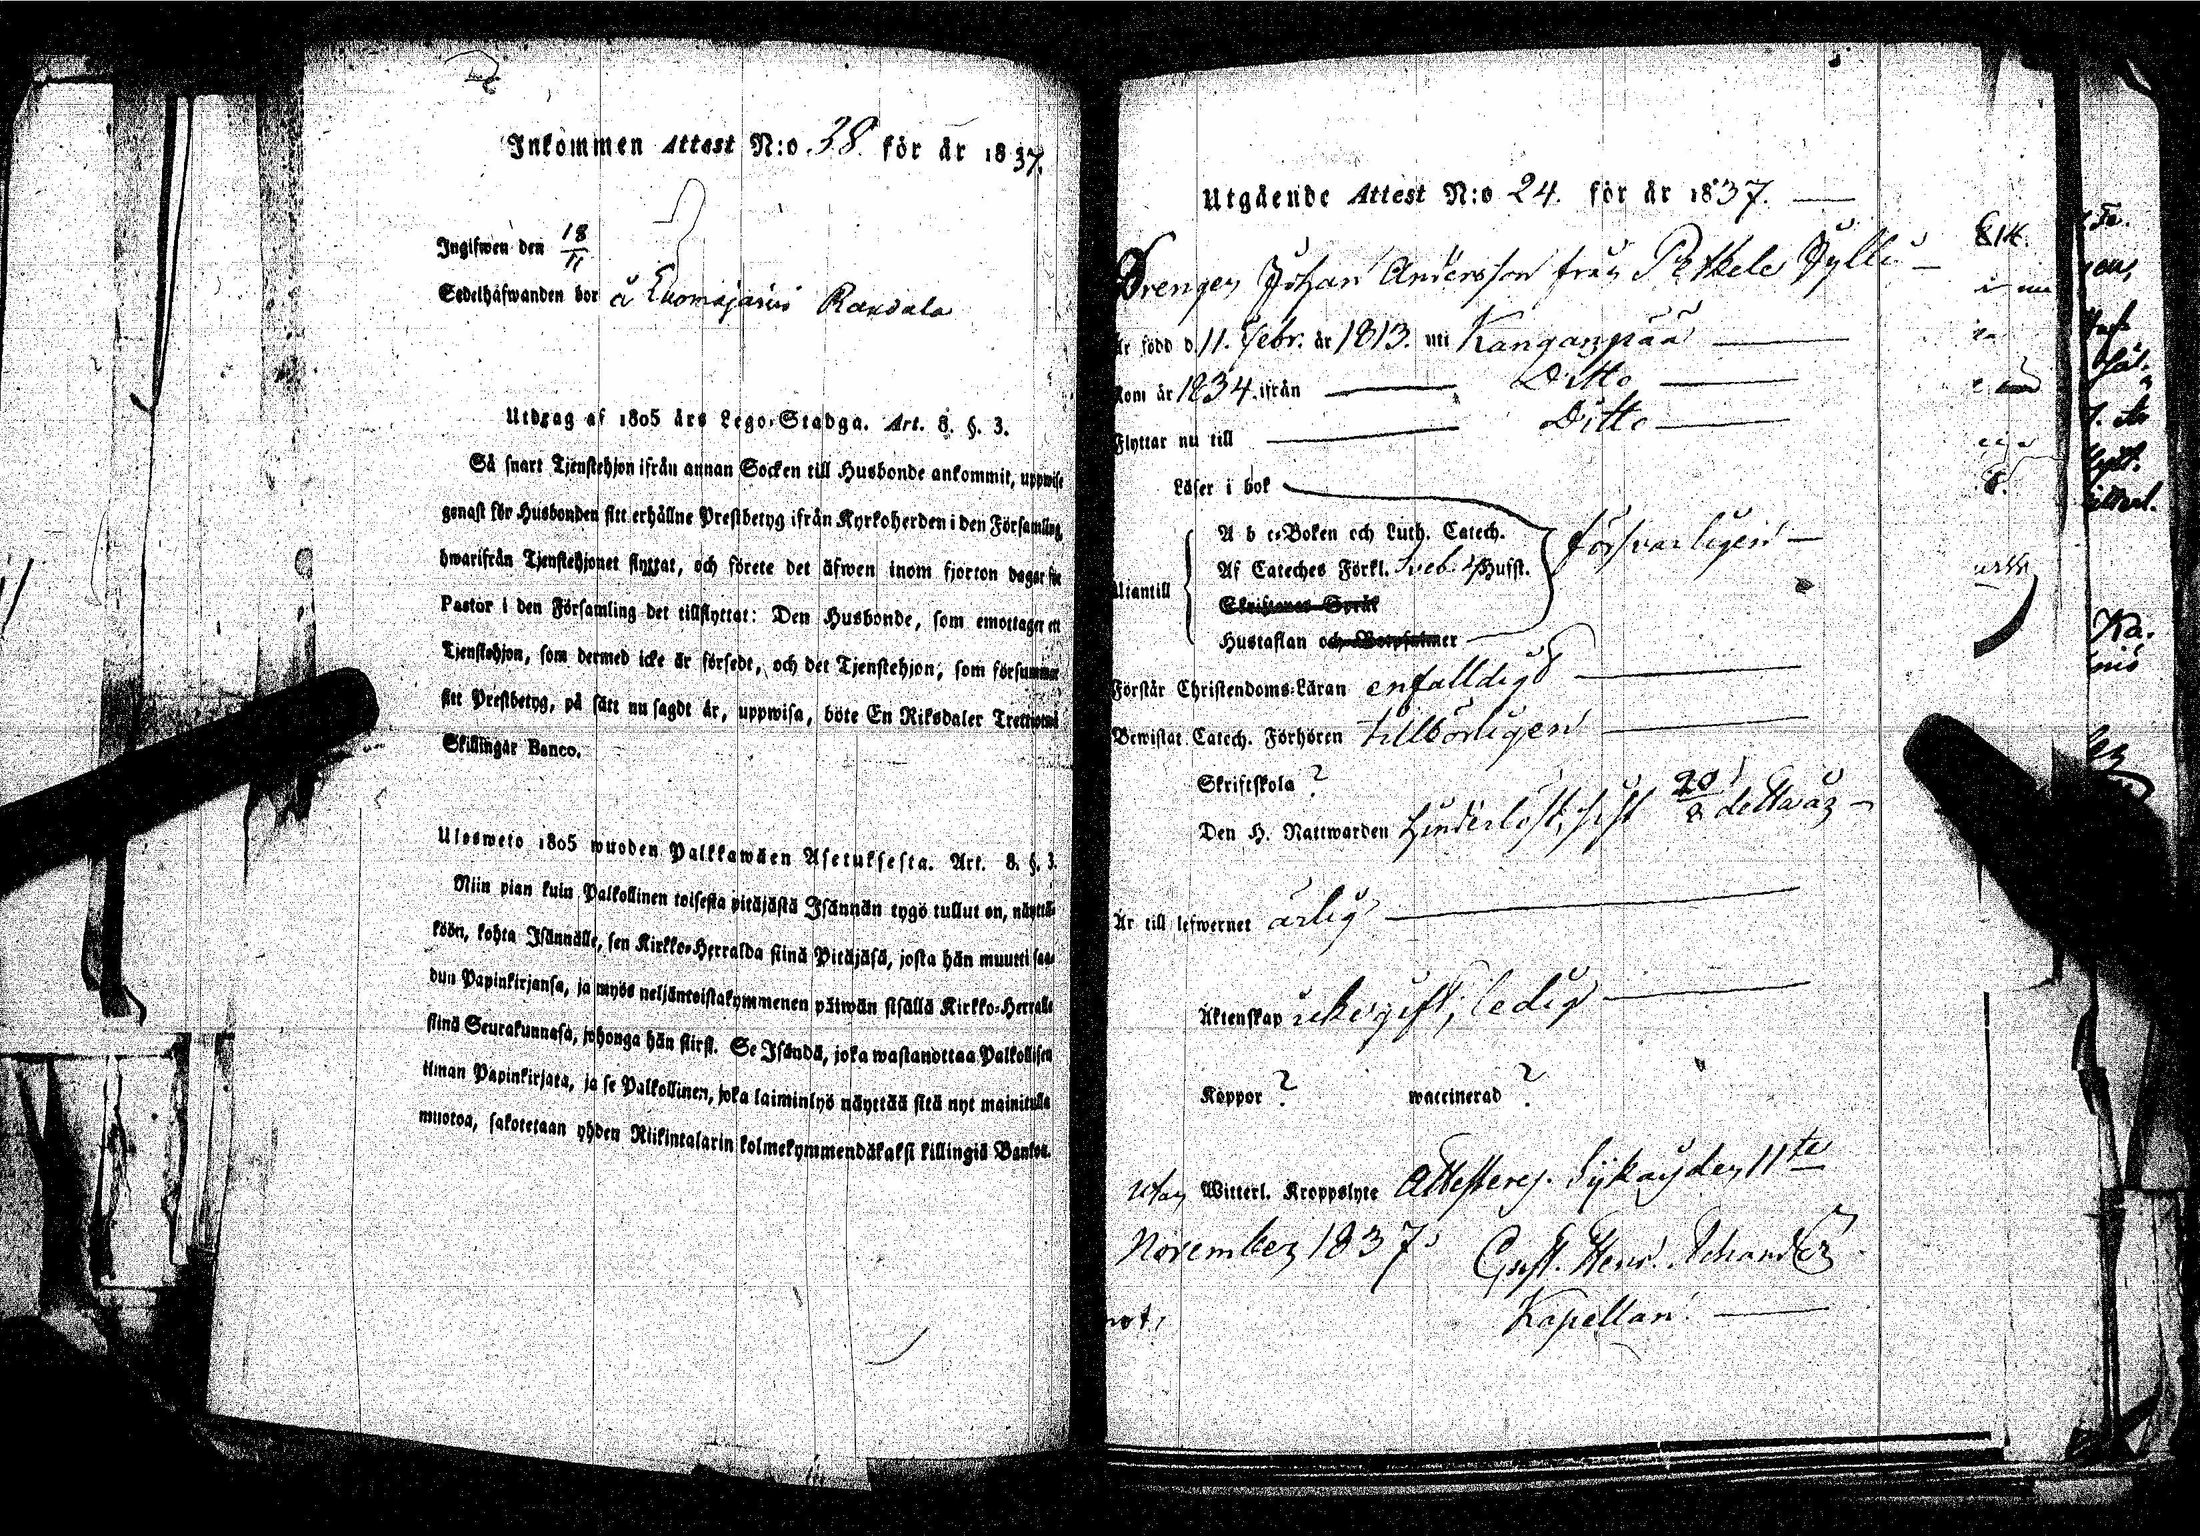 Inkommen Attest N:o 38. för år 1837.
Ingifwen den 18/11
Sedelhafwanden bor å Tuomajärwi Randala
Utdrag af 1805 års Lego-Stadga. Art. 8. §. 3.
Så snart Tjenstehjon ifrån annan Socken till Husbonde ankommit, uppwise
genast för Husbonden sitt erhållne Prestbetyg ifrån Kyrkoherden i den Församling,
hwarifrån Tjenstehjonet flyttat, och förete det äfwen inom fjorton dagar för
Pastor i den Församling det tillflyttat: Den Husbonde, som emottager ett
Tjenstehjon, som dermed icke är försedt, och det Tjenstehjon, som försummar
sitt Prestbetyg, på sätt nu sagdt är, uppwisa, böte En Riksdaler Trettiotwå
Skillingar Banco.
Ulosweto 1805 wuoden Palkkawäen Asetuksesta. Art. 8. §. 3.
Niin pian kuin Palkollinen toisesta pitäjästä Isännän tygö tullut on, näyttä-
köön, kohta Isännälle, sen Kirkko-Herralda siinä Pitäjäsä, josta hän muutti saa-
dun Papinkirjansa, ja myös neljäntoistakymmenen päiwän sisällä Kirkko-Herralle
siinä Seurakunnasa, johonga hän siirsi. Se Isändä, joka wastanottaa Palkollisen
ilman Papinkirjata, ja se Palkollinen, joka laiminlyö näyttää sitä nyt mainitulla
muotoa, sakotetaan yhden Riikintalarin kolmekymmendäkaksi killingiä Bankoe.
Utgående Attest N:o 24. för år 1837.
Drengen Johan Andersson från Petkele Jylli
Är född d. 11. Febr. år 1813. uti Kangan̄pää
Kom år 1834. ifrån Ditto
Flyttar nu till Ditto
Läser i bok
A b c-Boken och Luth. Catech. försvarligen
Af Cateches Förkl. Sveb. Husst.
Utantill
Skriftenes Språk
Hustaflan och Botpsalmer
Förstår Christendoms-Läran enfalldigt
Bewistat Catech. Förhören tillbörligen
Skriftskola ?
Den H. Nattwarden hinderlöst, sist 20/8 detta år
Är till lefwernet ärlig
Äktenskap icke gift, ledig
Koppor ? waccinerad ?
utan Witterl. Kroppslyte Attesteras. Sijkais den 11te
November 1837. Gust. Henr. Schander
Kapellan